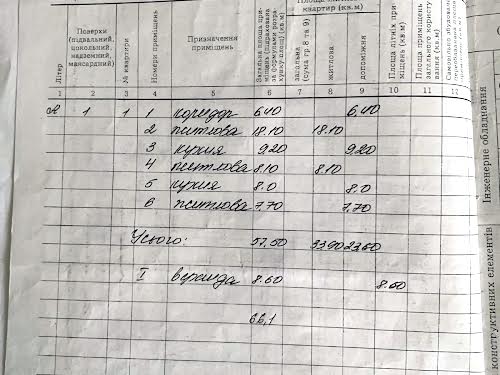 Літер
Поверхи (підвальний, цокольний, надземний, мансардний)
№ квартири
Номери приміщень
Призначення приміщень
Загальна площа приміщень
за формулами
квартир (кв.м)
загальна (сума гр.8 та 9)
житлова
допоміжна
Площа літніх приміщень (кв.м)
Площа приміщень загального користування (кв.м)
1 2 3 4 5 6 7 8 9 10 11 12
А 1 1 1 коридор 6.40 6.40
2 житлова 18.10 18.10
3 кухня 9.20 9.20
4 житлова 8.10 8.10
5 кухня 8.0 8.0
6 житлова 7.70 7.70
Усього: 57.50 33.90 23.60
I веранда 8.60 8.60
66,1
Інженерне обладнання
конструктивних елементів